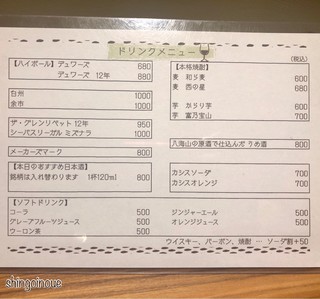 ドリンクメニュー
(税込)
【ハイボール】デュワーズ 680
デュワーズ 12年 880
白州 1000
余市 1000
ザ・グレンリベット 12年 950
シーバスリーガル ミズナラ 1000
メーカーズマーク 800
【本日のおすすめ日本酒】
銘柄は入れ替わります 1杯120ml 800
【本格焼酎】
麦 和ら麦 600
麦 西の星 680
芋 からり芋 600
芋 富乃宝山 700
八海山の原酒で仕込んだうめ酒 800
カシスソーダ 700
カシスオレンジ 700
【ソフトドリンク】
コーラ 500
グレープフルーツジュース 500
ウーロン茶 500
ジンジャーエール 500
オレンジジュース 500
ウイスキー、バーボン、焼酎 … ソーダ割+50
shingoinoue